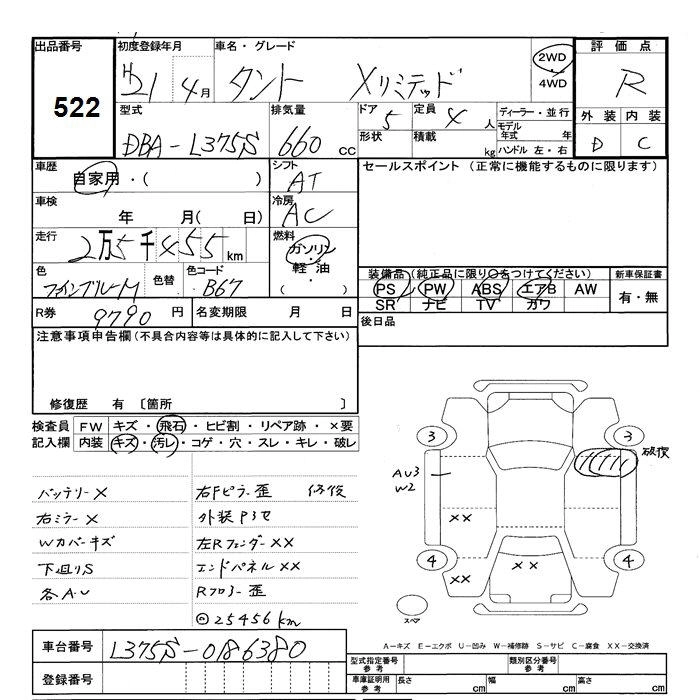 出品番号 初度登録年月 車名・グレード 評価点
522
H21 4月 タント Xリミテッド 2WD 4WD R
型式 排気量 ドア 定員 ディーラー・並行 外装 内装
DBA-L375S 660 cc 5 4人 モデル年式 年 D C
形状 積載 kg ハンドル 左・右
車歴 自家用・( ) シフト AT
セールスポイント (正常に機能するものに限ります)
車検 年 月( 日) 冷房 AC
走行 2万5千455km 燃料 ガソリン・軽油・( )
色 ファインブルーM 色替 色コード B67
装備品(純正品に限り○をつけてください) 新車保証書
PS PW ABS エアB AW 有・無
SR ナビ TV カワ
R券 9790円 名変期限 月 日
後日品
注意事項申告欄(不具合内容等は具体的に記入して下さい)
修復歴 有 〔箇所 〕
検査員記入欄 FW キズ・飛石・ヒビ割・リペア跡・×要
内装 キズ・汚レ・コゲ・穴・スレ・キレ・破レ
バッテリー× 右Fピラー歪 修復
右ミラー× 外装Pヨセ
Wカバーキズ 左Rフェンダー××
下廻りS エンドパネル××
各A・U Rフロアー歪
◎25456km
3 3
AU3
W2
××
4 4
×× ××
スペア
A-キズ E-エクボ U-凹み W-補修跡 S-サビ C-腐食 XX-交換済
車台番号 L375S-0186380
登録番号
型式指定番号参考 類別区分番号参考
車庫証明用参考 長さ cm 幅 cm 高さ cm